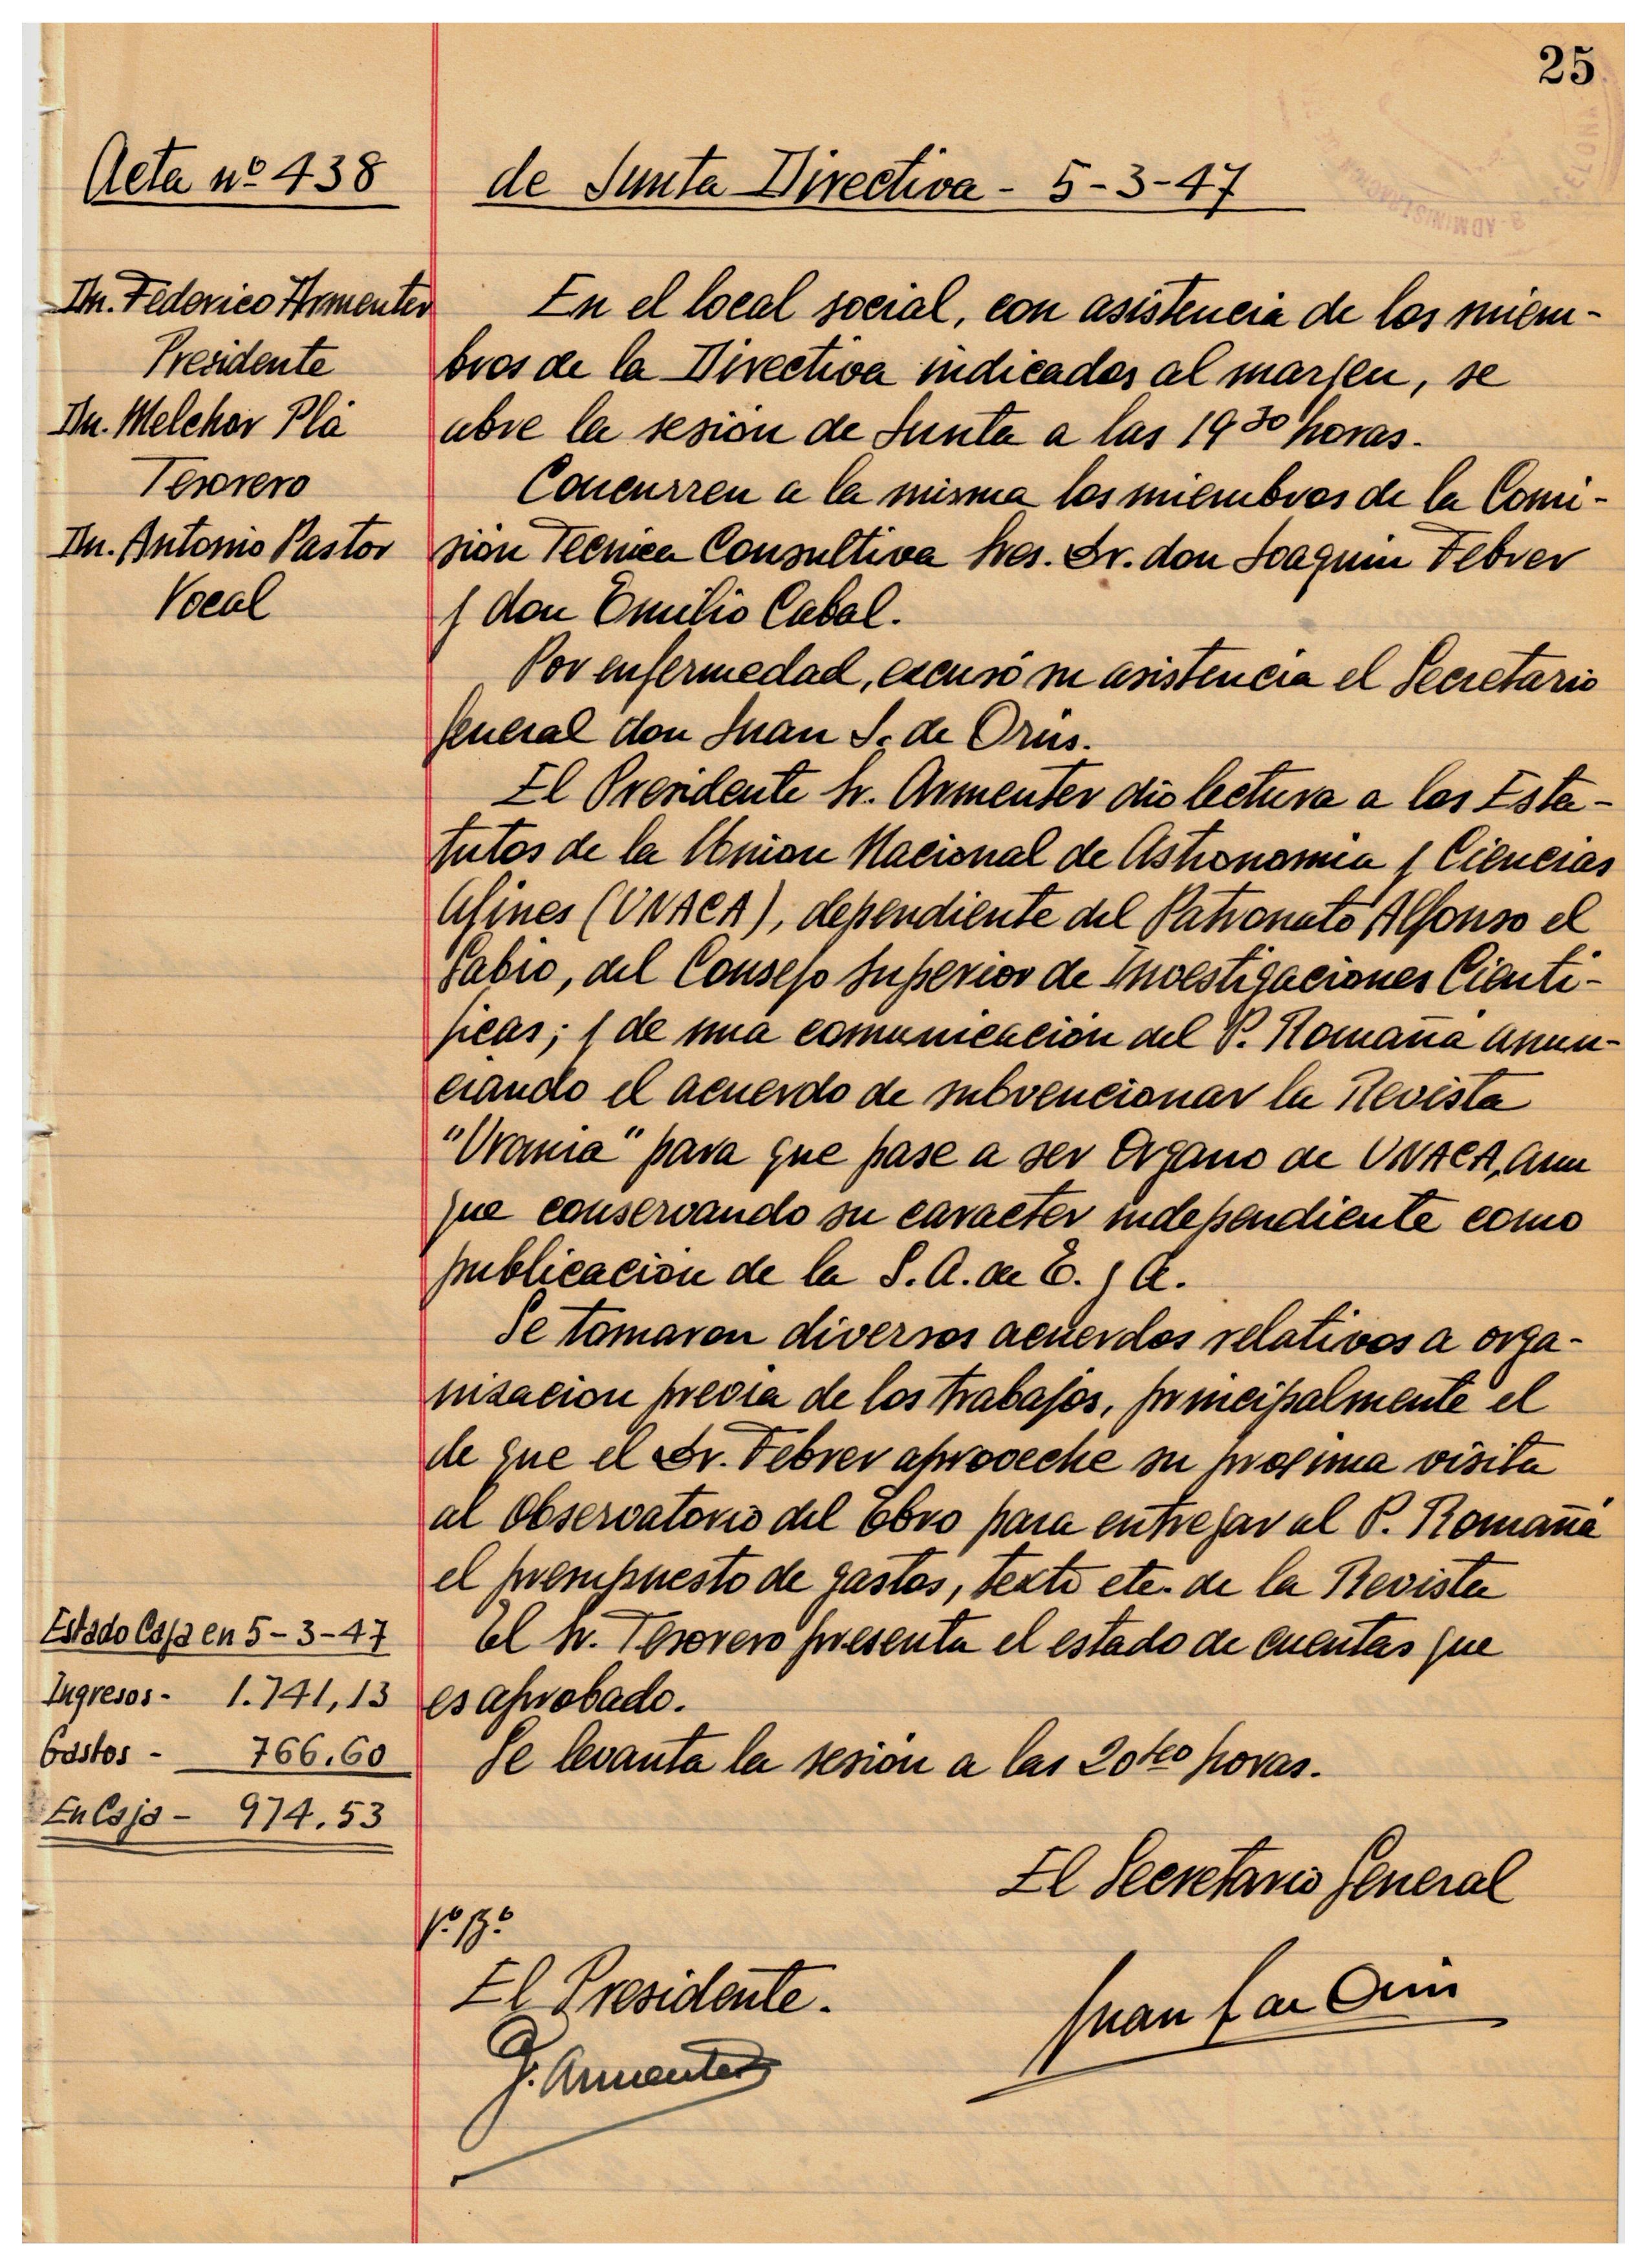 25
Acta nº 438
de Junta Directiva - 5-3-47
Dn. Federico Armenter
Presidente
Dn. Melchor Plá
Tesorero
Dn. Antonio Pastor
Vocal
En el local social, con asistencia de los miem-
bros de la Directiva indicados al margen, se
abre la sesión de Junta a las 19 30 horas.
Concurren a la misma los miembros de la Comi-
sión Tecnica Consultiva Sres. Dr. don Joaquin Febrer
y don Emilio Cabal.
Por enfermedad, excusó su asistencia el Secretario
General don Juan S. de Orús.
El Presidente Sr. Armenter dió lectura a los Esta-
tutos de la Union Nacional de Astronomia y Ciencias
Afines (UNACA), dependiente del Patronato Alfonso el
Sabio, del Consejo Superior de Investigaciones Cienti-
ficas; y de una comunicación del P. Romañá anun-
ciando el acuerdo de subvencionar la Revista
"Urania" para que pase a ser Organo de UNACA, aun
que conservando su caracter independiente como
publicación de la S. A. de E. y A.
Se tomaron diversos acuerdos relativos a orga-
nizacion previa de los trabajos, principalmente el
de que el Dr. Febrer aproveche su proxima visita
al Observatorio del Ebro para entregar al P. Romañá
el presupuesto de gastos, texto etc. de la Revista
El Sr. Tesorero presenta el estado de cuentas que
es aprobado.
Se levanta la sesión a las 20 horas.
Estado Caja en 5-3-47
Ingresos - 1.741,13
Gastos - 766.60
En Caja - 974.53
El Secretario General
Vº Bº
El Presidente.
Juan S de Orús
F. Armenter